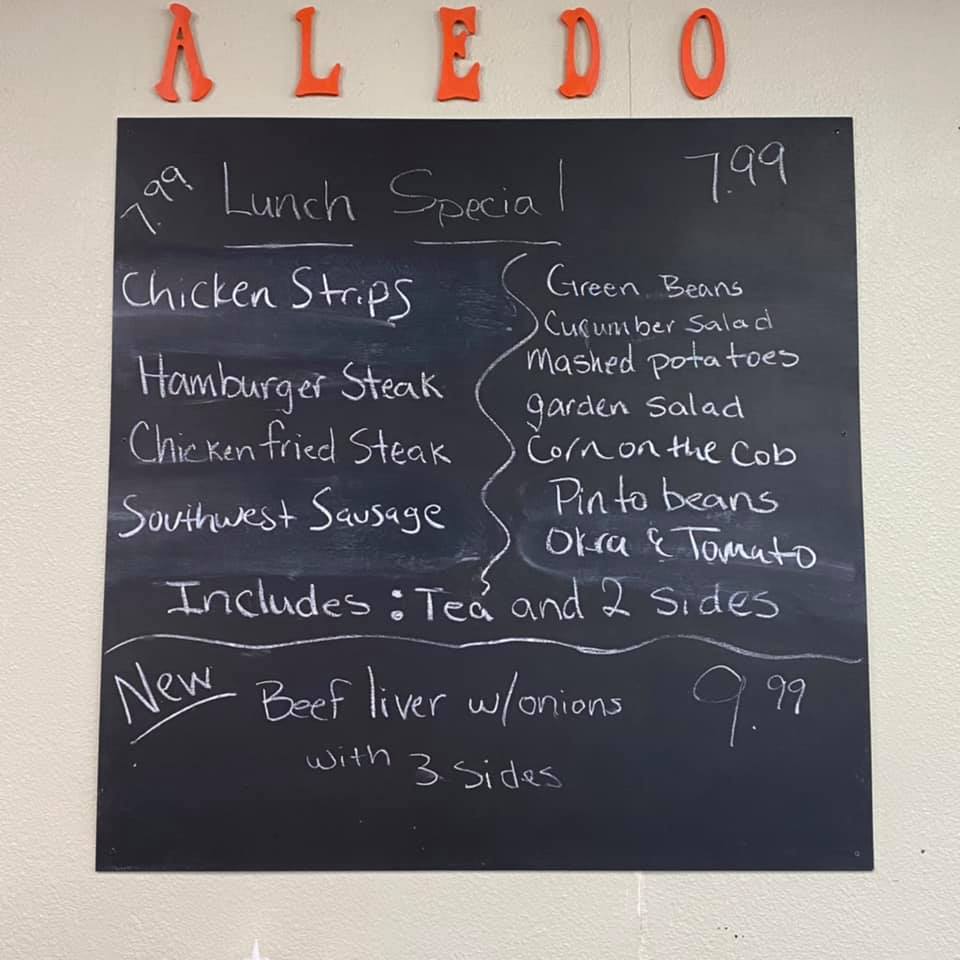 ALEDO
7.99 Lunch Special 7.99
Chicken Strips
Hamburger Steak
Chicken fried Steak
Southwest Sausage
Green Beans
Cucumber Salad
Mashed potatoes
garden salad
Corn on the Cob
Pinto beans
Okra & Tomato
Includes: Tea and 2 sides
New Beef liver w/onions 9.99
with 3 Sides